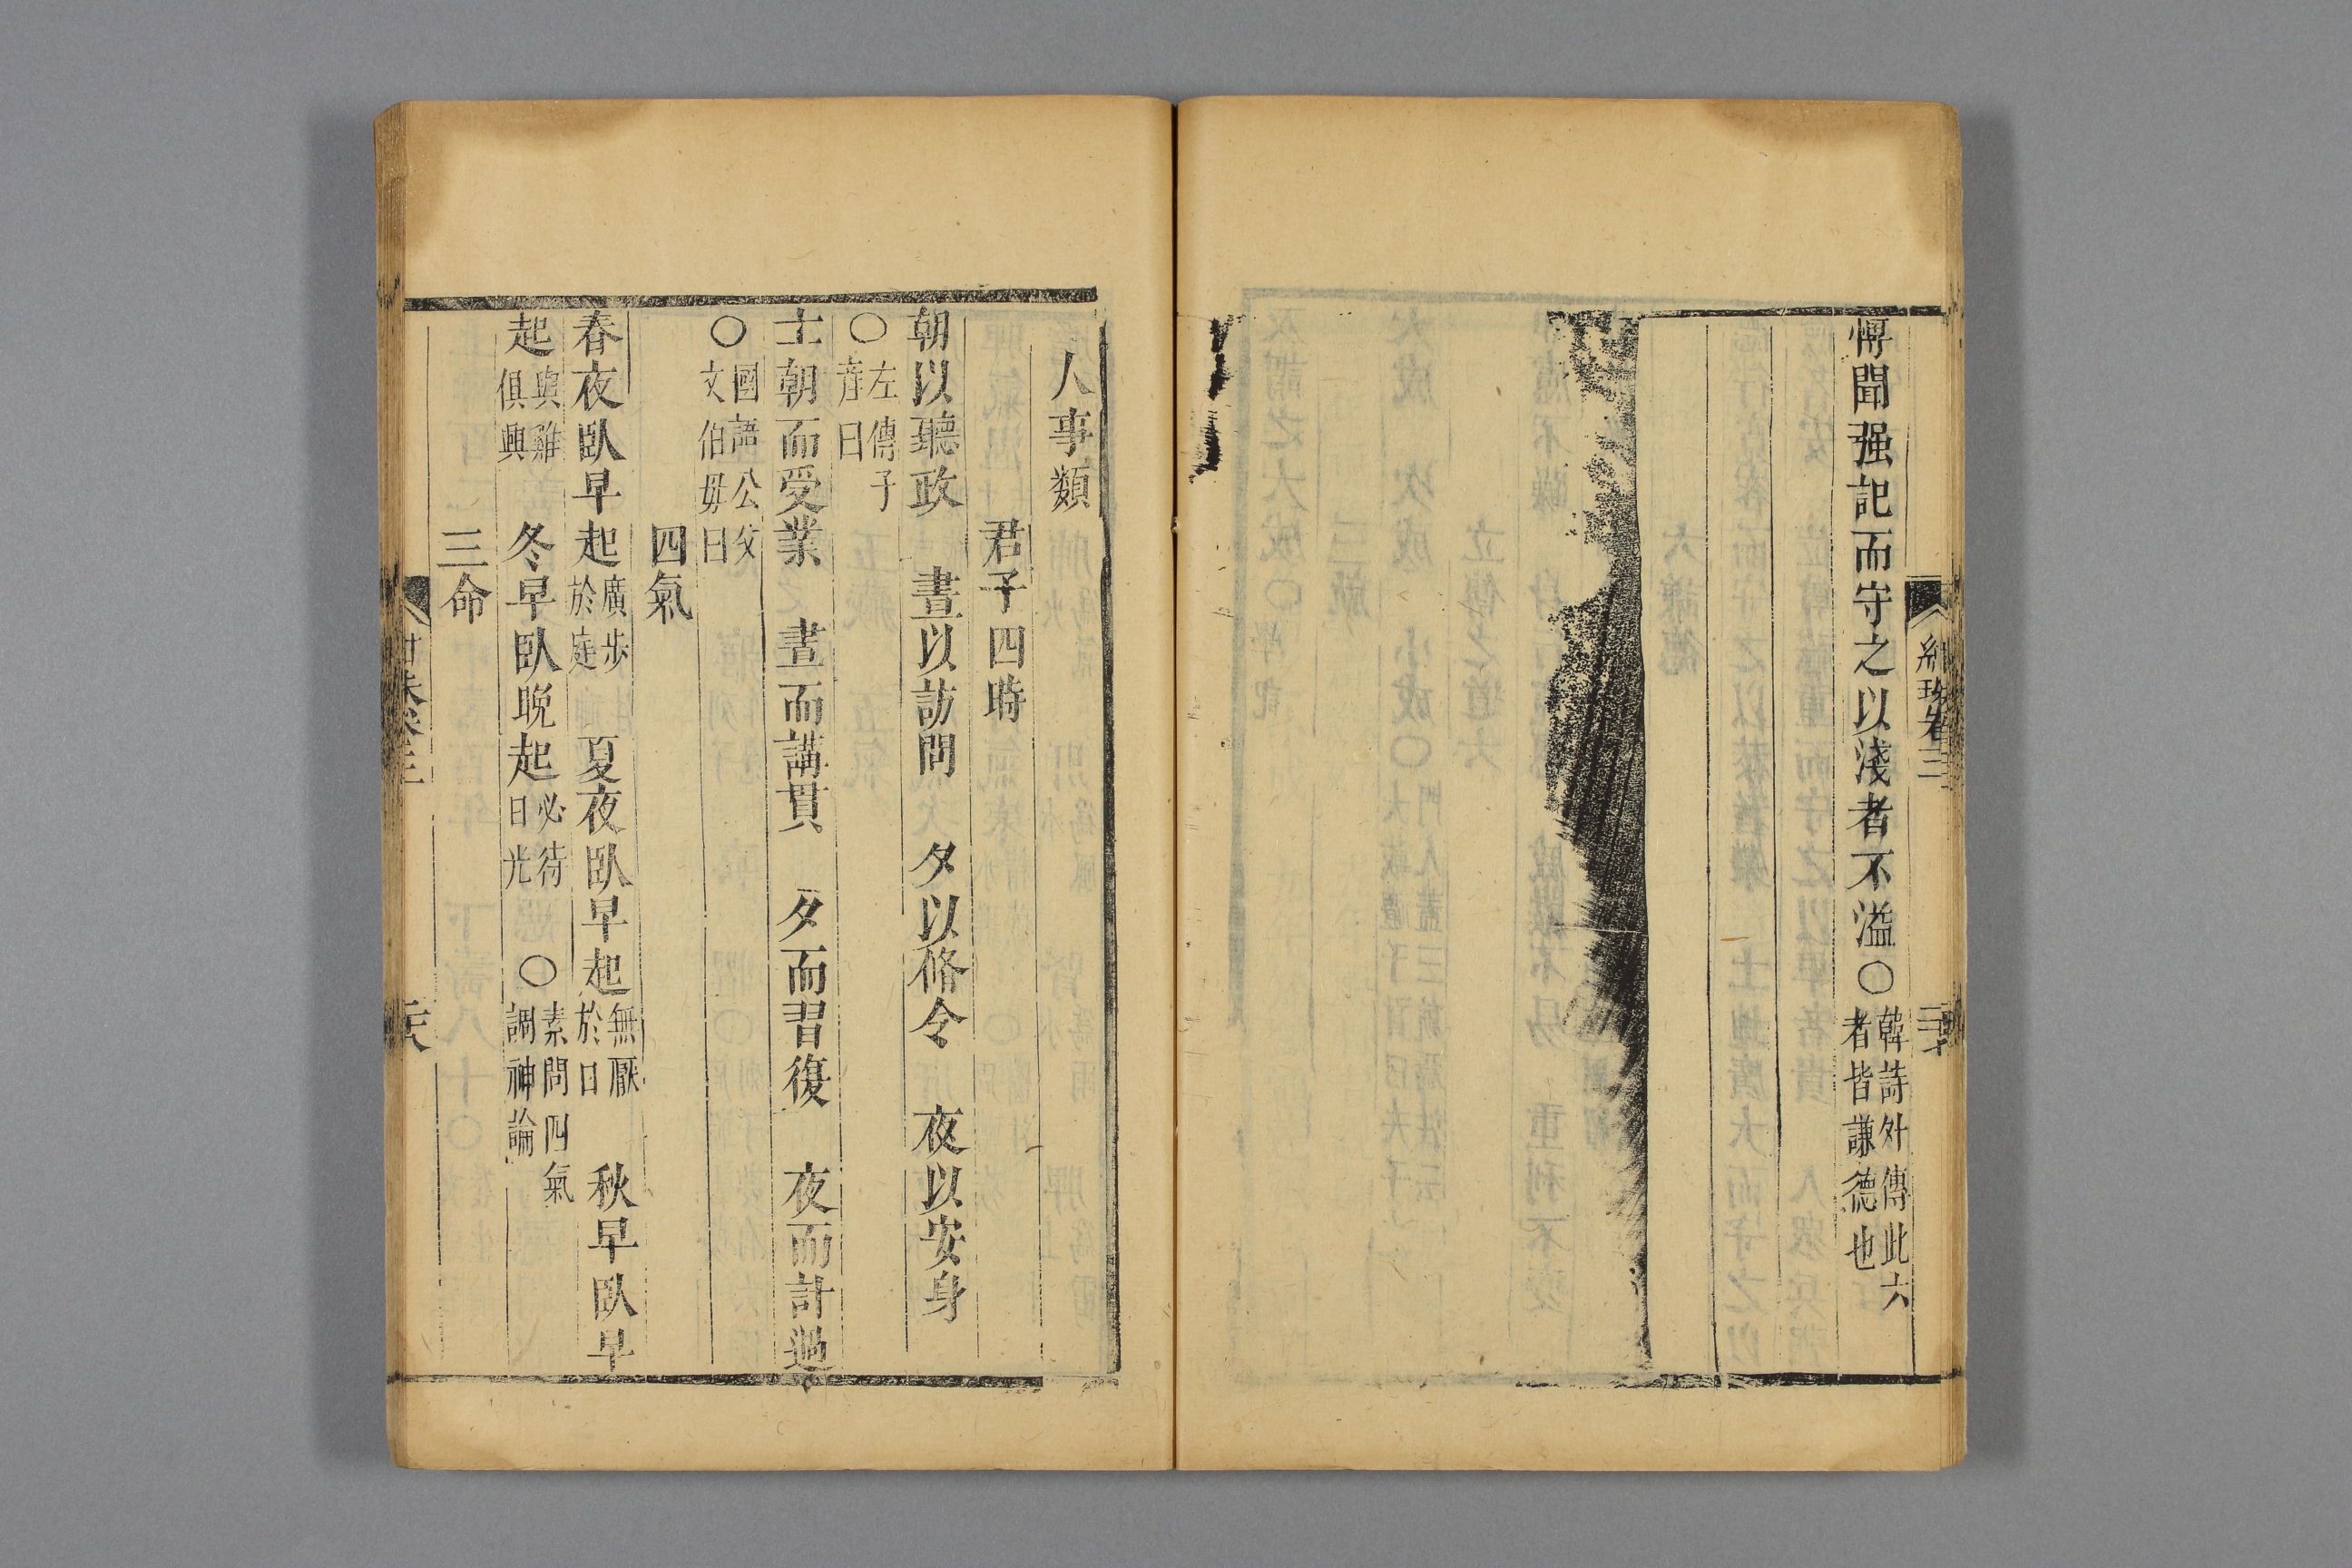 博聞强記而守之以淺者不溢〇韓詩外傳此六者皆謙德也
卷三
人事類
君子四時
朝以聽政　晝以訪問　夕以脩令　夜以安身
〇左傳子産曰
士朝而受業　晝而講貫　夕而習復　夜而計過
〇國語公父文伯毋曰
四氣
春夜臥早起廣步於庭　夏夜臥早起無厭於日　秋早臥早
起與雞俱興　冬早臥晚起必待日光　〇素問四氣調神論
三命